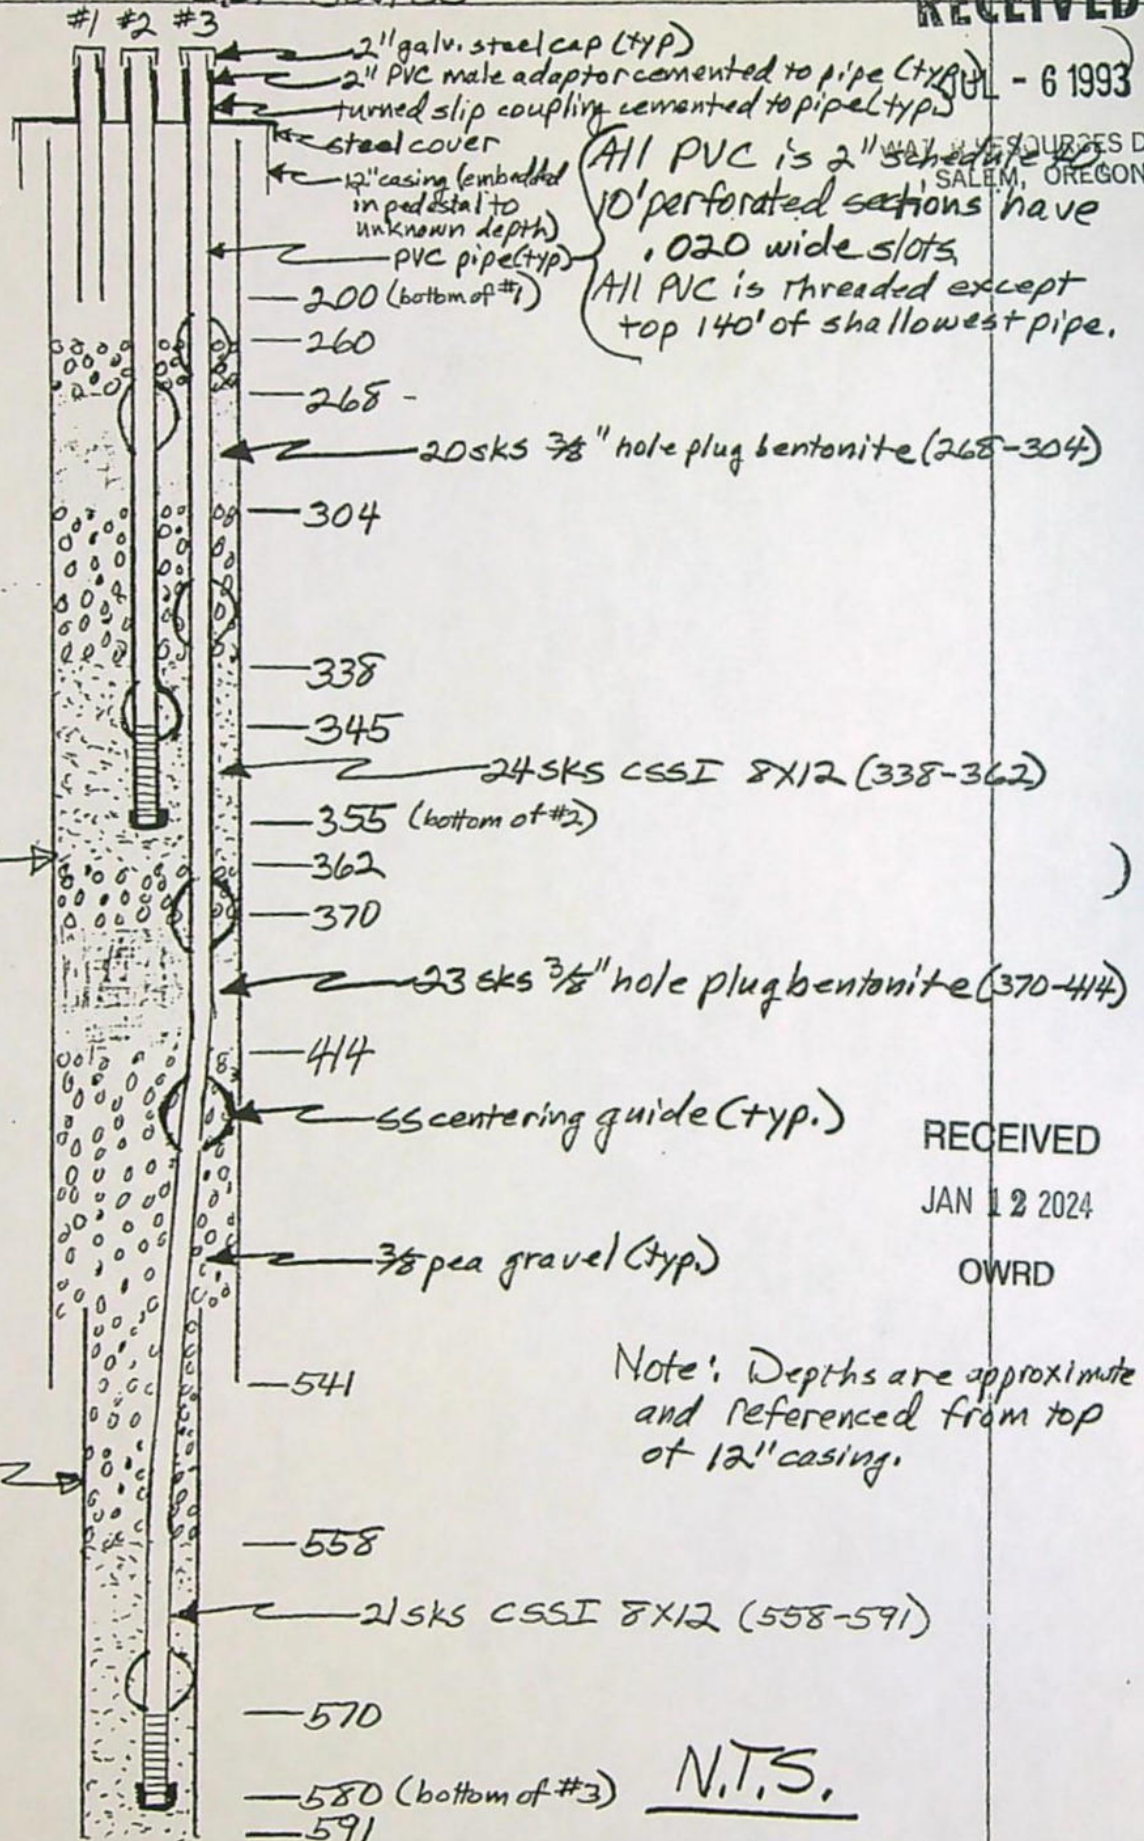 RECEIVED
#1 #2 #3
2" galv. steel cap (typ)
2" PVC male adaptor cemented to pipe (typ.)
JUL - 6 1993
turned slip coupling cemented to pipe (typ.)
steel cover
12" casing (embedded
in pedestal to
unknown depth)
PVC pipe (typ)
All PVC is 2" schedule 40,
RESOURCES D
SALEM, OREGON
10' perforated sections have
.020 wide slots
All PVC is threaded except
top 140' of shallowest pipe.
200 (bottom of #1)
260
268 -
20 sks 3/8" hole plug bentonite (268-304)
304
338
345
24 sks CSSI 8X12 (338-362)
355 (bottom of #2)
362
370
23 sks 3/8" hole plug bentonite (370-414)
414
ss centering guide (typ.)
RECEIVED
JAN 12 2024
OWRD
3/8 pea gravel (typ.)
541
Note: Depths are approximate
and referenced from top
of 12" casing.
558
21 sks CSSI 8X12 (558-591)
570
580 (bottom of #3)
N.T.S.
591